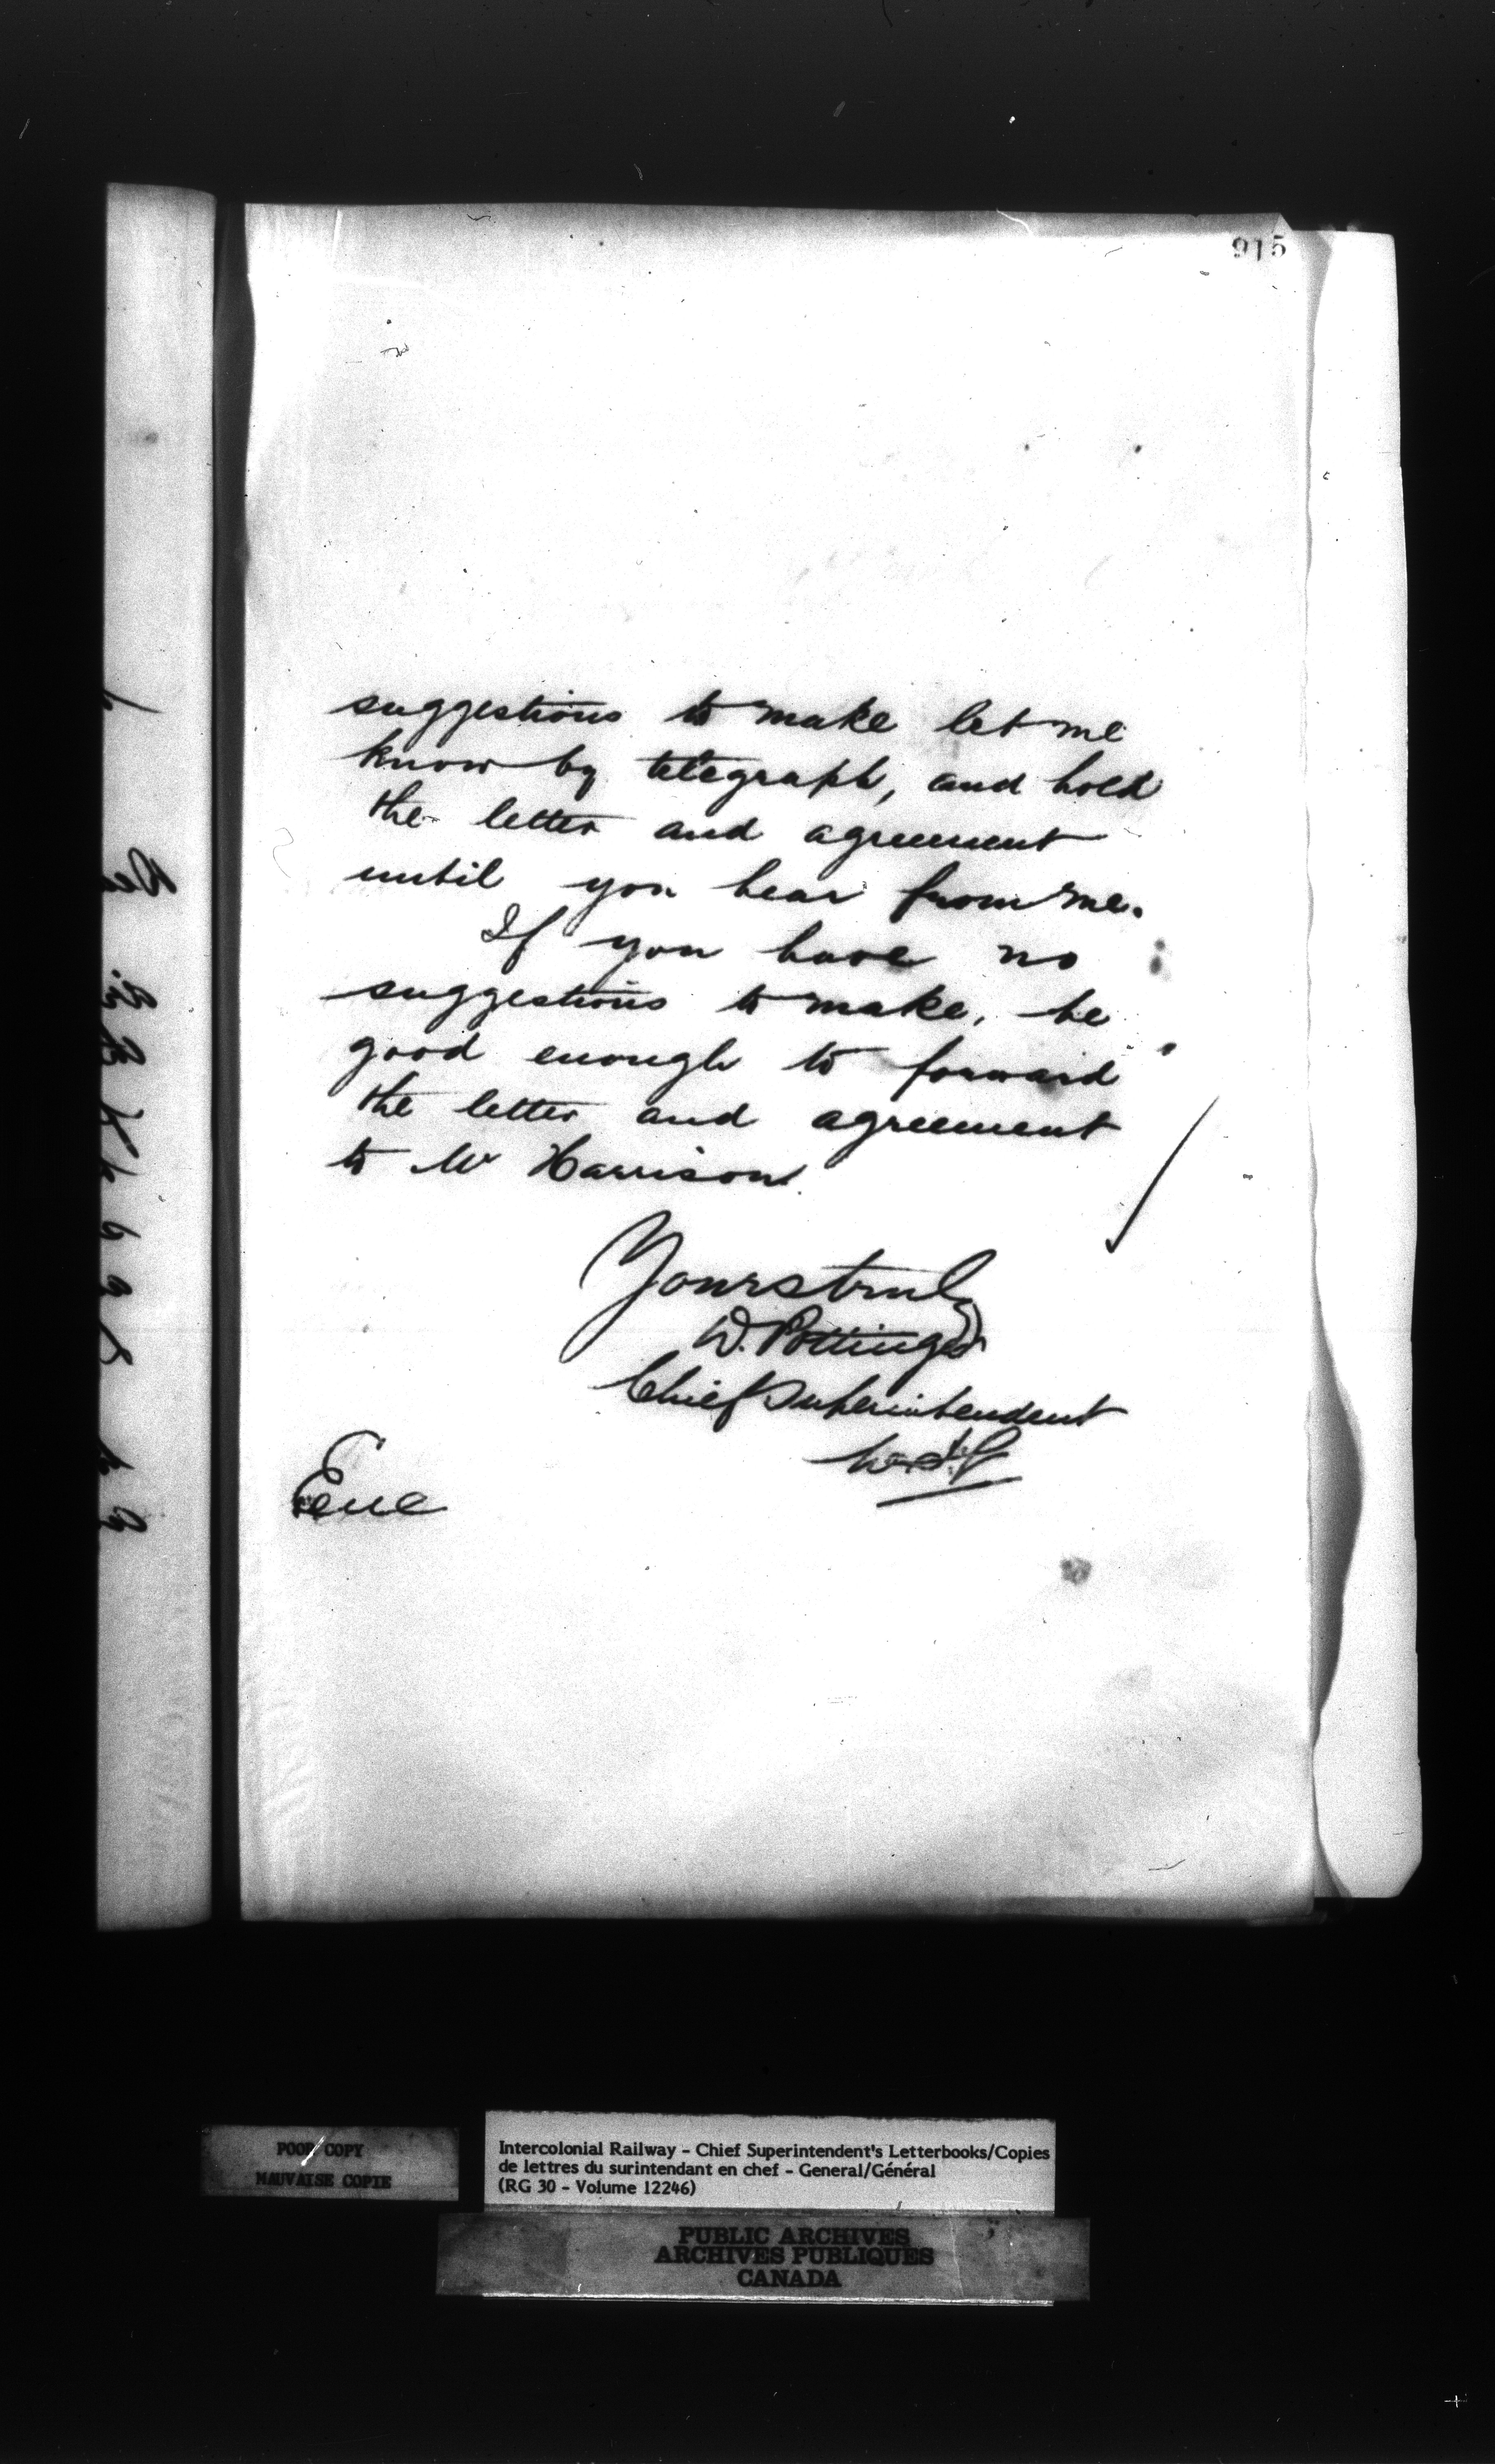 915
suggestions to make let me
know by telegraph, and hold
the letter and agreement
until you hear from me.
If you have no
suggestions to make, be
good enough to forward
the letter and agreement
to Mr Harrison.
Yours truly
D. Pottinger
Chief Superintendent
Enc
POOR COPY
MAUVAISE COPIE
Intercolonial Railway - Chief Superintendent's Letterbooks/Copies
de lettres du surintendant en chef - General/Général
(RG 30 - Volume 12246)
PUBLIC ARCHIVES
ARCHIVES PUBLIQUES
CANADA